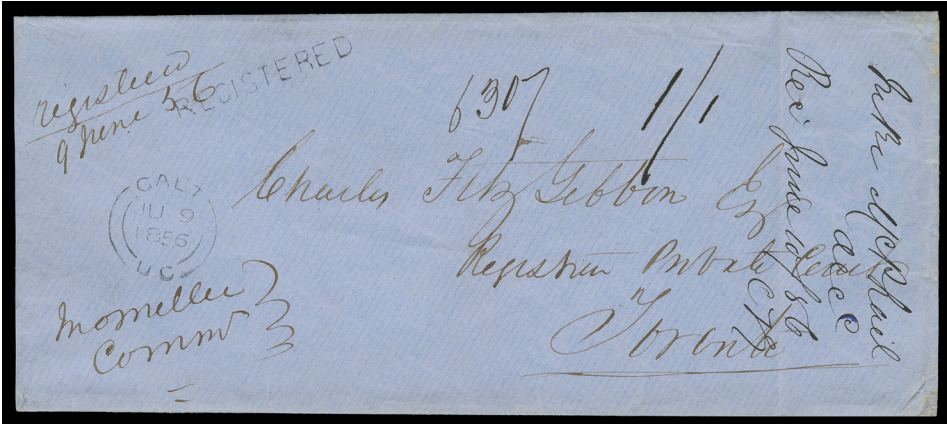 registered
9 June 56
REGISTERED
6307
1/1
GALT
JU 9
1856
U.C.
Charles FitzGibbon Esq
Registrar Probate Court
Toronto
Comm
In Re McPhail
Rec June 10/56
CFG